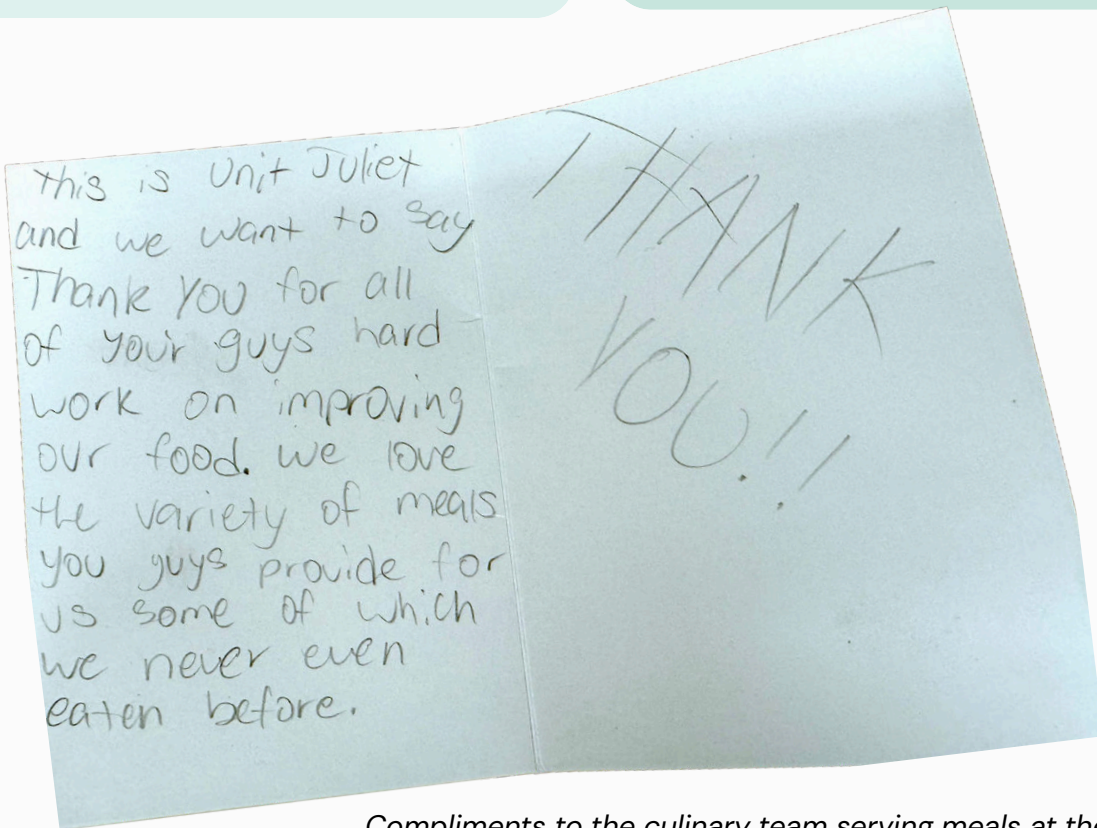 This is Unit Juliet
and we want to say
Thank You for all
of your guys hard
work on improving
our food. we love
the variety of meals
you guys provide for
us some of which
we never even
eaten before.
THANK
YOU!!
Compliments to the culinary team serving meals at the